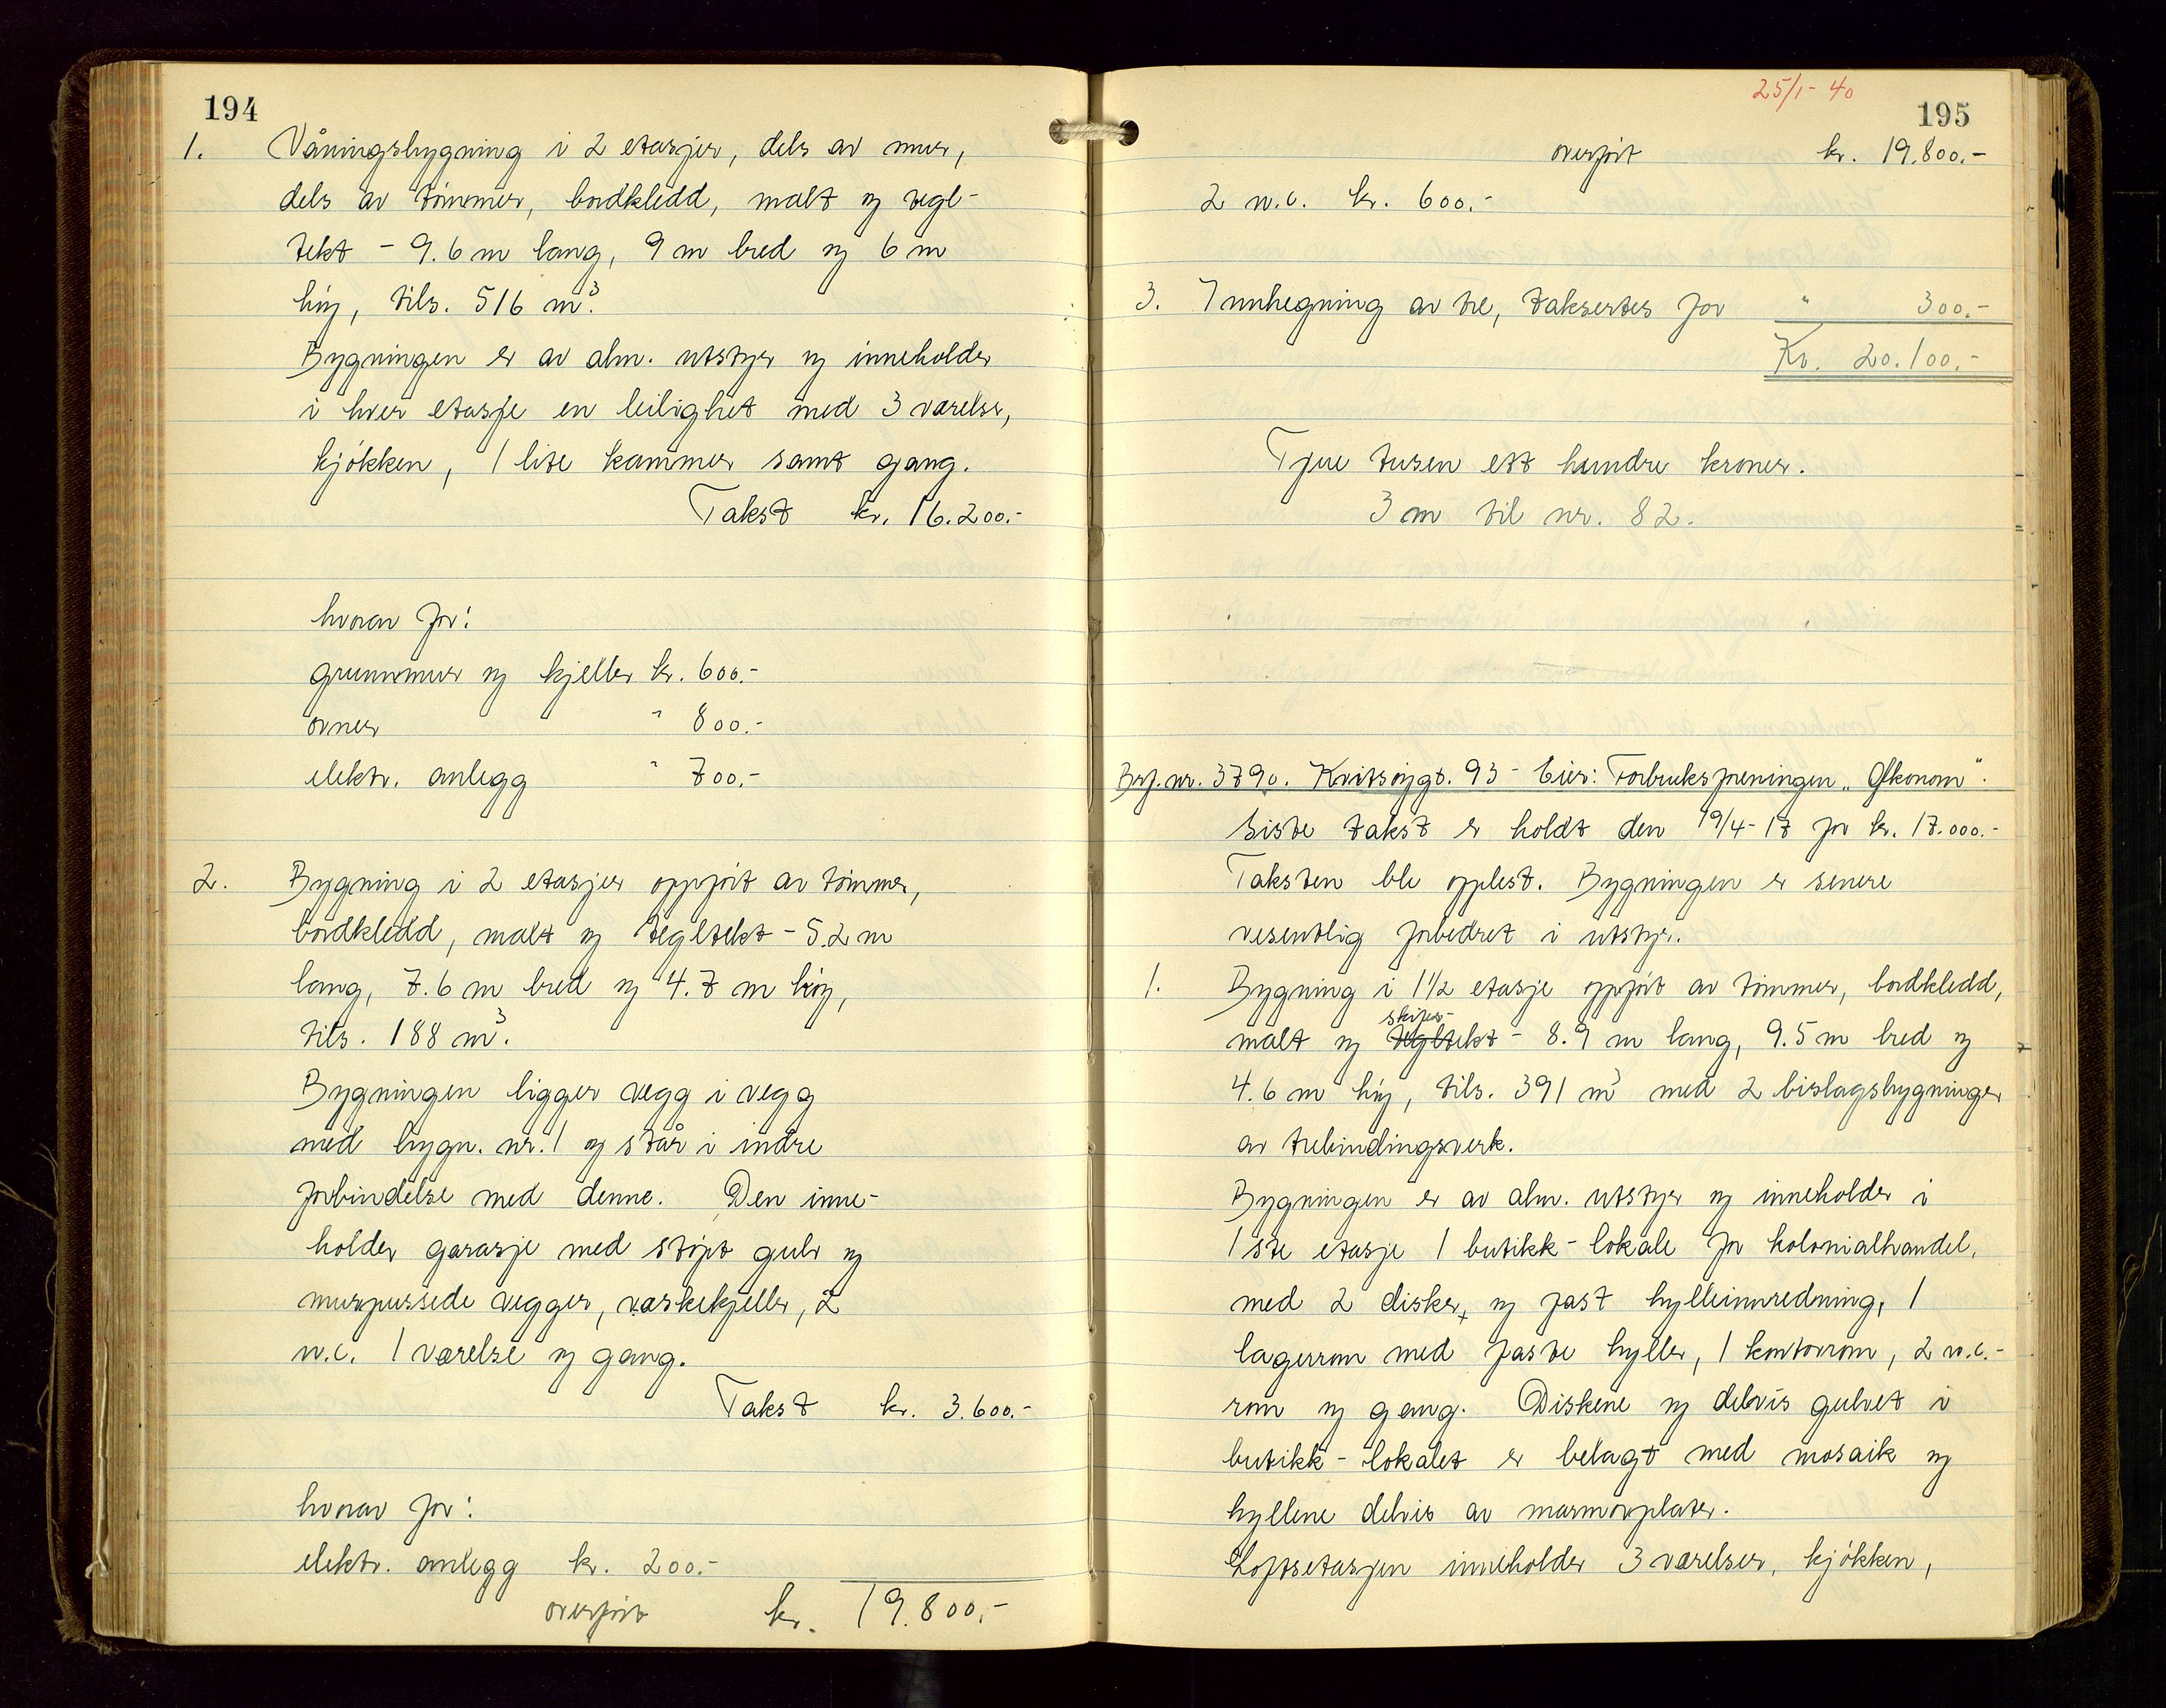 194
1. Våningsbygning i 2 etasjer, dels av mur,
dels av tömmer, bordkledd, malt og tegl-
tekt - 9.6 m lang, 9 m bred og 6 m
höy, tils. 516 m³.
Bygningen er av alm. utstyr og inneholder
i hver etasje en leilighet med 3 værelser,
kjökken, 1 lite kammer samt gang.
Takst kr. 16.200.-
hvorav for:
grunnmur og kjeller kr. 600.-
ovner " 800.-
elektr. anlegg " 700.-
2. Bygning i 2 etasjer oppfört av tömmer,
bordkledd, malt og tegltekt - 5.2 m
lang, 7.6 m bred og 4.7 m höy,
tils. 188 m³.
Bygningen ligger vegg i vegg
med bygn. nr. 1 og står i indre
forbindelse med denne. Den inne-
holder garasje med stöpt gulv og
murpussede vegger, vaskekjeller, 2
w.c. 1 værelse og gang.
Takst kr. 3.600.-
hvorav for:
elektr. anlegg kr. 200.-
overfört kr. 19.800.-
25/1- 40
195
overfört kr. 19.800.-
2 w.c. kr. 600.-
3. Innhegning av tre, takseres for " 300.-
Kr. 20.100.-
Tjue tusen ett hundre kroner.
3 m til nr. 82.
Brf. nr. 3790. Kvitsöygt. 93 - Eier: Forbruksforeningen „Økonom".
Siste takst er holdt den 19/4-17 for kr. 17.000.-
Taksten ble opplest. Bygningen er senere
vesentlig forbedret i utstyr.
1. Bygning i 1½ etasje oppfört av tömmer, bordkledd,
skifer-
malt og tegltekt - 8.9 m lang, 9.5 m bred og
4.6 m höy, tils. 391 m³ med 2 bislagsbygninger
av trebindingsverk.
Bygningen er av alm. utstyr og inneholder i
1ste etasje 1 butikk-lokale for kolonialhandel,
med 2 disker, og fast hylleinnredning, 1
lagerrom med faste hyller, 1 kontorrom, 2 w.c.-
rom og gang. Diskene og delvis gulvet i
butikk-lokalet er belagt med mosaik og
hyllene delvis av marmorplater.
Loftsetasjen inneholder 3 værelser, kjökken,